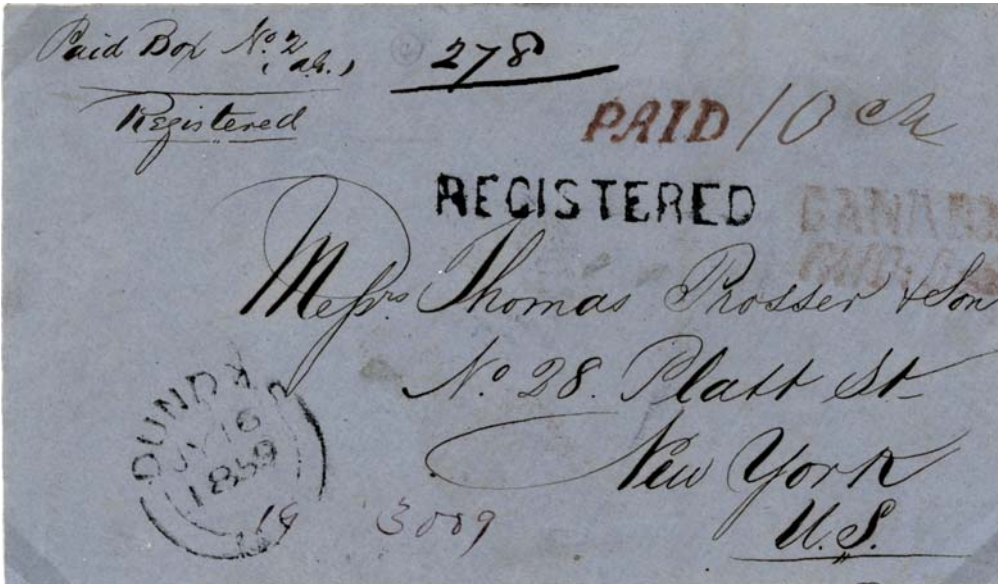 Paid Box No. 2
278
Registered
PAID 10 cts
REGISTERED
CANADA
Messrs. Thomas Prosser & Son
No 28. Platt St
New York
U.S.
DUNDAS
JY 16
1859
3009